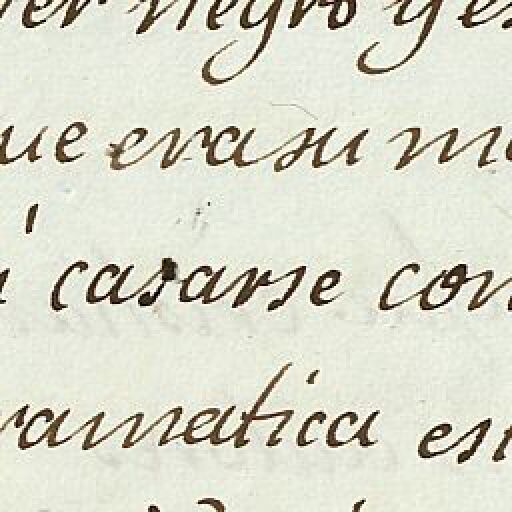 er negro y es
ue era su m
casarse con
ramatica est